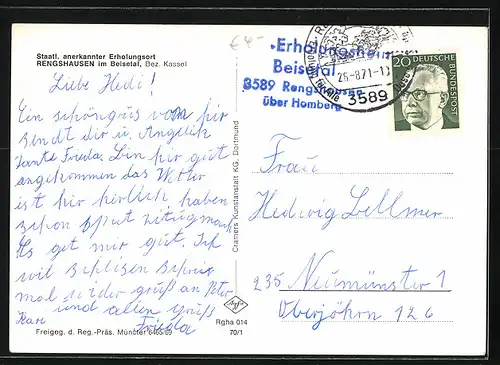 Staatl. anerkannter Erholungsort
RENGSHAUSEN im Beisetal, Bez. Kassel
Liebe Hedi!
Ein schöngrus von hir
sendt dir u. Angelik
Tante Frieda. bin hir gut
angekommen das Wetter
ist hir hirlich, haben
schon
Es get mir gut. Ich
wil schlisen schreib
mal wider gruß an Peter
und allen Gruß
Frieda
Freigeg. d. Reg.-Präs. Münster 6465/69
Cramers Kunstanstalt KG, Dortmund
Rgha 014
70/1
Erholungsheim
Beisetal
3589 Rengshausen
über Homberg
26.-8.71-1
3589
20
DEUTSCHE BUNDESPOST
Frau
Hedwig Lellmer
235 Neumünster 1
Oberjöhrn 126